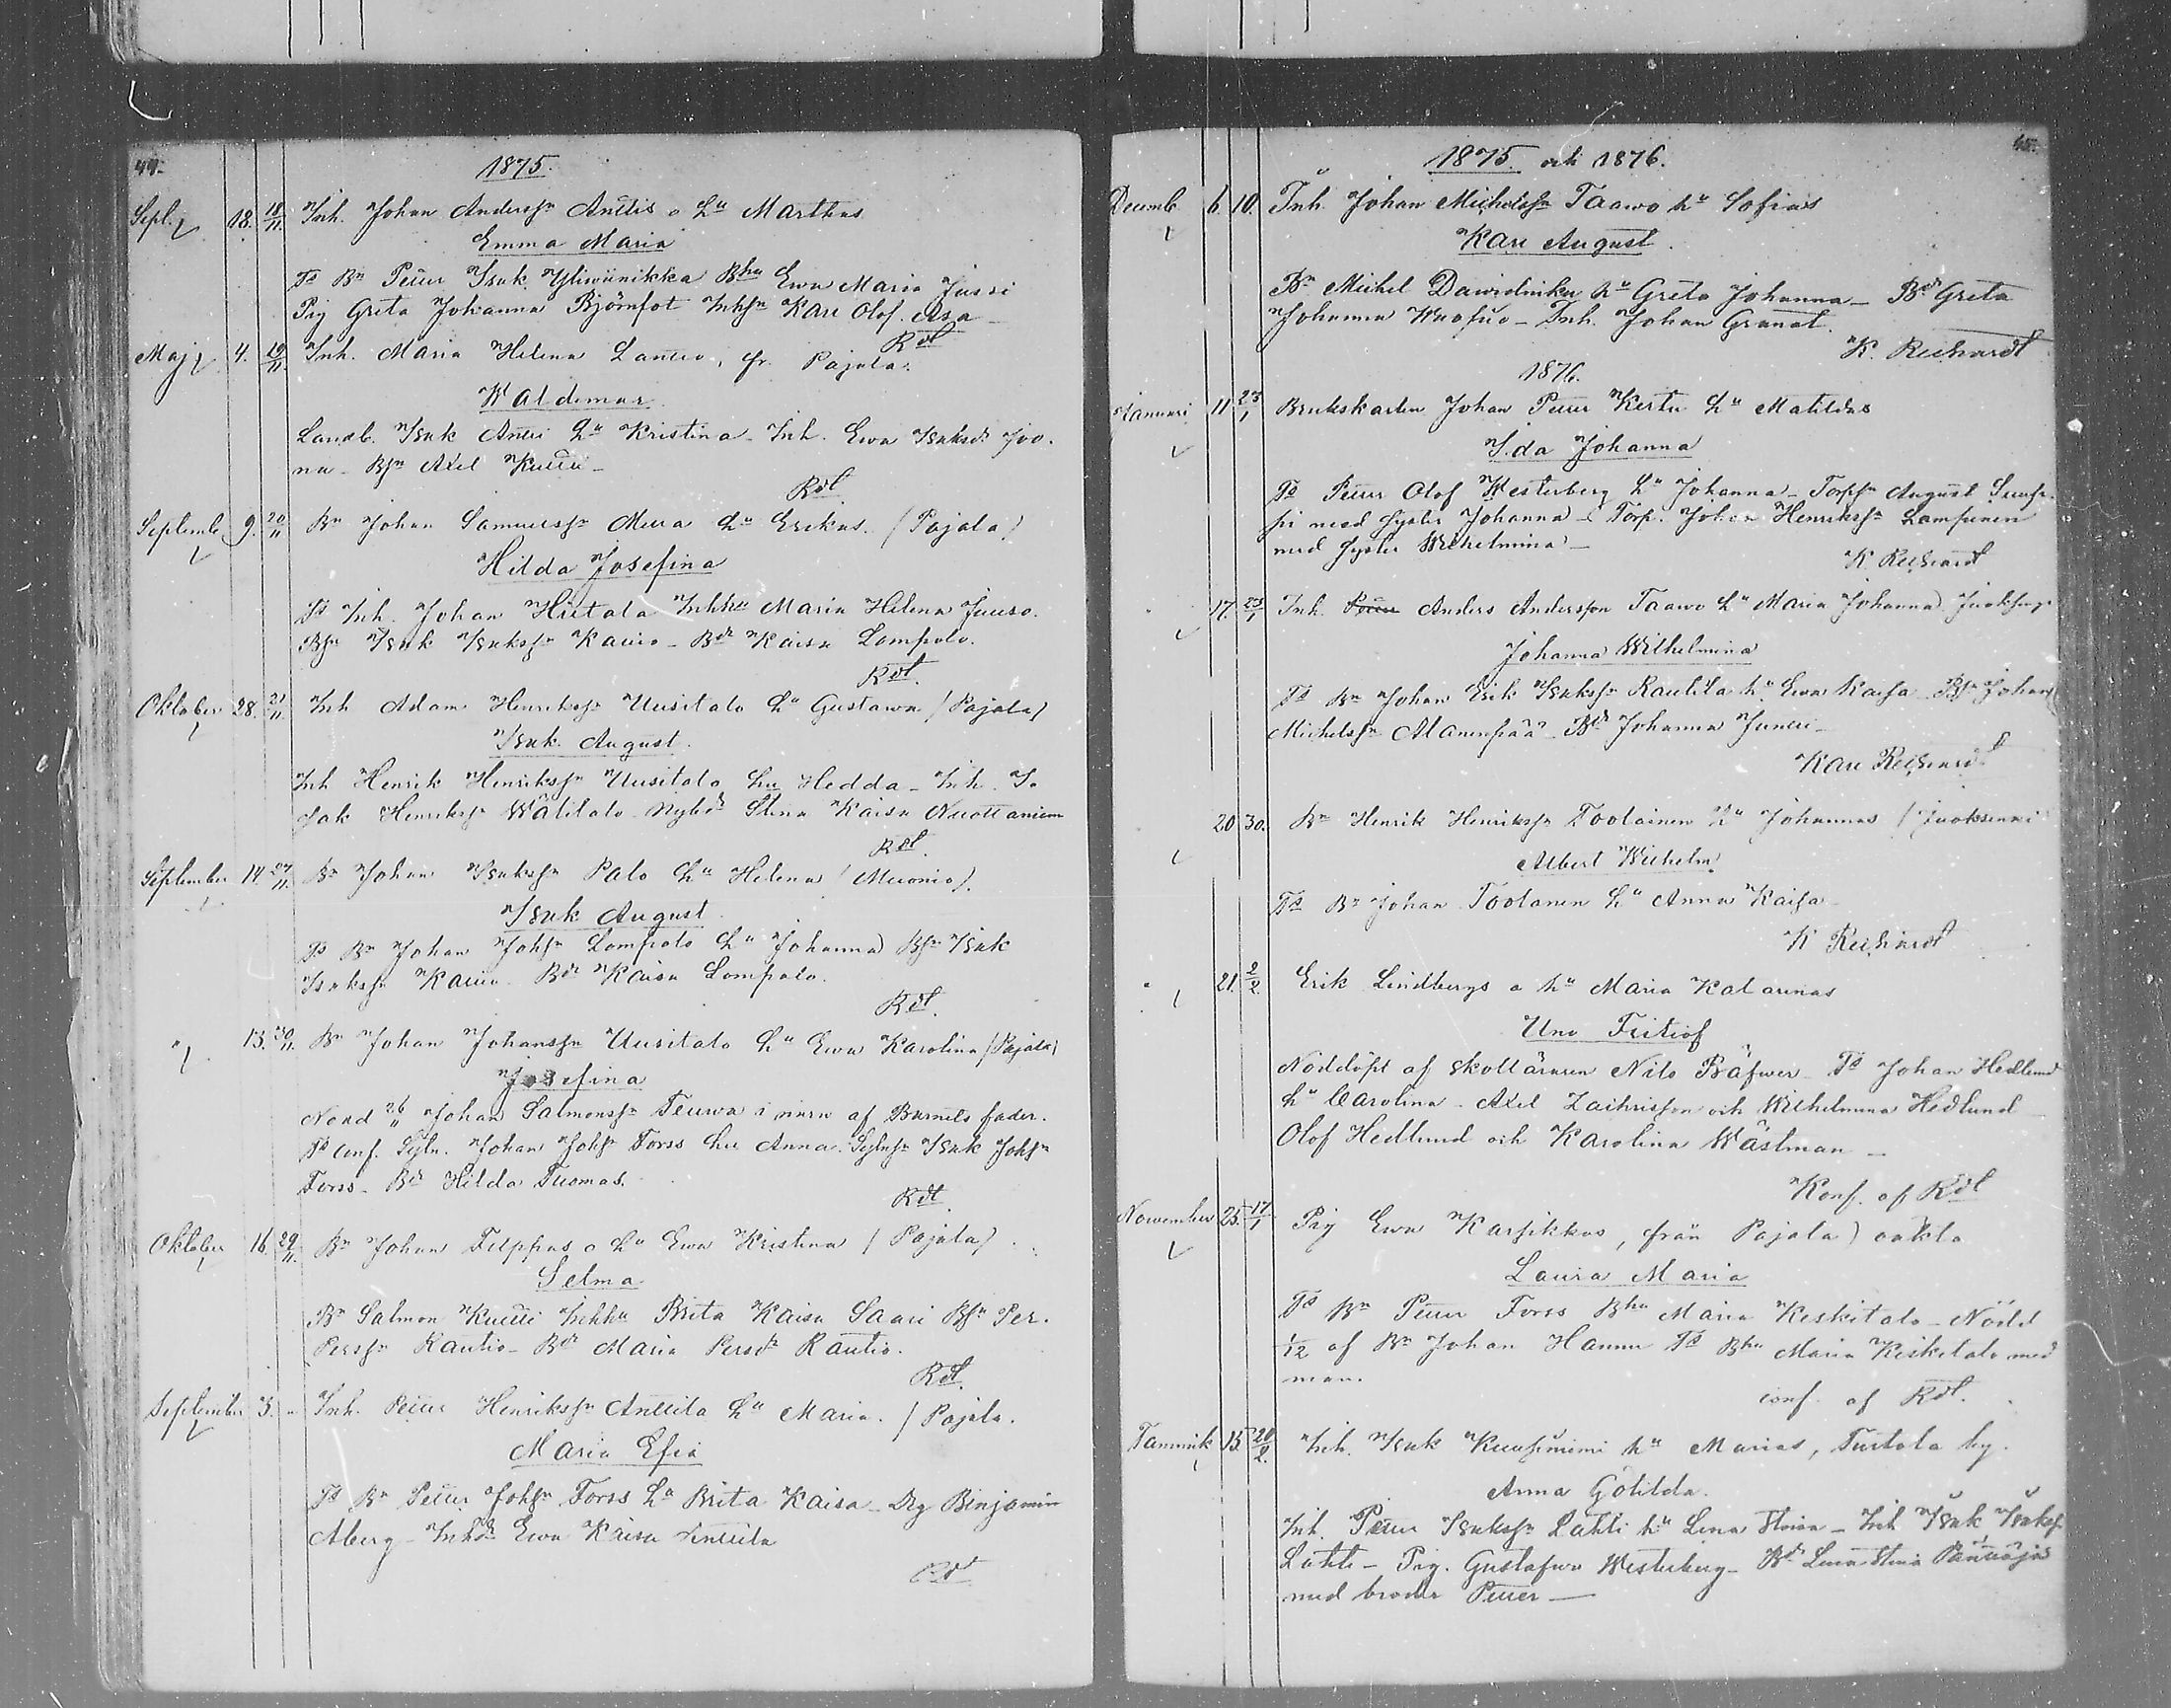 44.
1875.
Sept. 18. 18/11. Inh. Johan Anderssn Anttis o hu Marthas
Emma Maria
Ts Bn Petter Isak Yliwäinikka Bhu Ewa Maria Jussi
Pig Greta Johanna Björnfot Inhsn Karl Olof Asa
Rdt
Maj 4. 19/11. Inh. Maria Helena Lanttos, fr. Pajala.
Waldemar
Landb. Isak Antti hu Kristina - Inh. Ewa Isaksdr Joo-
na - Bsn Axel
Rdt
Septemb. 9. 20/11 Bn Johan Samuelssn hu Erikas. (Pajala)
Hilda Josefina
Ts Inh. Johan Hietala Inhhu Maria Helena Juuso.
Bsn Isak Isakssn - Bdr Kaisa Lompolo.
Rdt.
Oktober 28. 21/11. Inh Adam Henrikssn Uusitalo hu Gustawa (Pajala)
Isak August.
Inh Henrik Henrikssn Uusitalo hu Hedda - Inh. I-
sak Henrikssn Wälitalo - Nybdr Stina Kaisa
Rdt.
September 14. 27/11. Bn Johan Isakssn Palo hu Helena (Muonio).
Isak August
Ts Bn Johan Johssn Lompolo hu Johanna Bsn Isak
Isakssn Bdr Kaisa Lompolo.
Rdt.
" 13. 30/11. Bn Johan Johanssn Uusitalo hu Ewa Karolina (Pajala)
Josefina
Nöad 26/11 Johan Salmonssn Teurwa i närw af Barnets fader.
Ts Conf. Johan Johssn Forss hu Anna. Isak Johssn
Forss - Bdr Hilda Tuomas.
Rdt.
Oktober 16. 29/11. Bn Johan Filppas o hu Ewa Kristina (Pajala)
Selma
Bn Salmon Inhhu Brita Kaisa Saari Bsn Per.
Perssn Rautio - Bdr Maria Persdr Rautio.
Rdt.
September 3. " Inh. Petter Henrikssn Anttila hu Maria. (Pajala.
Maria Efia
Ts Bn Petter Johssn Forss hu Brita Kaisa - Drg Benjamin
Åberg - Inhdr Ewa Kaisa Anttila
Rdt
45.
1875. och 1876.
Decemb. 6. 10. Inh. Johan Michelssn Taawo hu Sofias
Karl August.
Bn Michel Dawidinka hu Greta Johanna - Bdr Greta
Johanna - Inh. Johan Granat.
K. Reichardt
1876.
Januari 11 23/1 Brukskarlen Johan Petter Kertu hu Matildas
Ida Johanna
Ts Petter Olof Westerberg hu Johanna - Torpsn August
med syster Johanna - Torp. Johan Henrikssn Lampinen
med syster Wilhelmina -
K. Reichardt
" 17. 23/1 Inh. Anders Andersson Taawo hu Maria Johanna.
Johanna Wilhelmina
Ts Bn Johan Erik Isakssn Rautila hu Ewa Kaisa - Bsn Johan
Michelssn Alanenpää - Bdr Johanna
Karl Reichardt
20 30. Bn Henrik Henrikssn Toolainen hu Johannas (Juoksenni
Albert Wilhelm.
Ts Bn Johan Toolanen hu Anna Kaisa -
K Reichardt
" 21. 2/2. Erik Lindbergs o hu Maria Katarinas
Uno Fritiof
Nöddöpt af skolläraren Nils Bäfwer - Ts Johan Hedlund
hu Carolina - Axel Zachrisson och Wilhelmina Hedlund -
Olof Hedlund och Karolina Wästman -
Konf. af Rdt
November 25. 17/1 Pig Ewa Karpikkos, från Pajala) oäkta
Laura Maria
Ts Bn Petter Forss Bhu Maria Keskitalo - Nödd
1/12 af Bn Johan Hannu Ts Bhu Maria Keskitalo med
man.
conf. af Rdt.
15. 20/2. Inh. Isak hu Marias, Turtola by.
Anna Götilda.
Inh. Petter Isakssn Lahti hu Lena Stina - Inh Isak Isakss
Lahti - Pig. Gustafwa Westerberg - Bdr Lena Stina
med broder Petter -